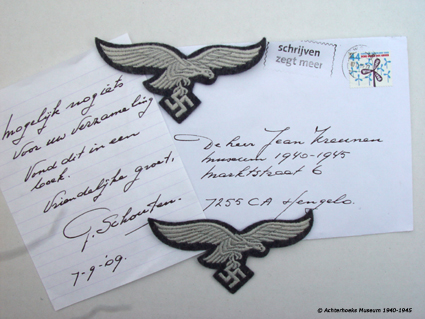 mogelijk nog iets
voor uw verzameling
Vond dit in een
boek.
Vriendelijke groet,
G. Schouten.
7-9-'09.
schrijven
zegt meer
De heer Jean Kreunen
museum 1940-1945
marktstraat 6
7255 CA Hengelo.
© Achterhoeks Museum 1940-1945